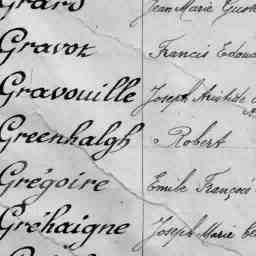 Jean Marie
Gravot Francis
Gravouille Joseph Aristide
Greenhalgh Robert
Grégoire Emile François
Gréhaigne Joseph Marie